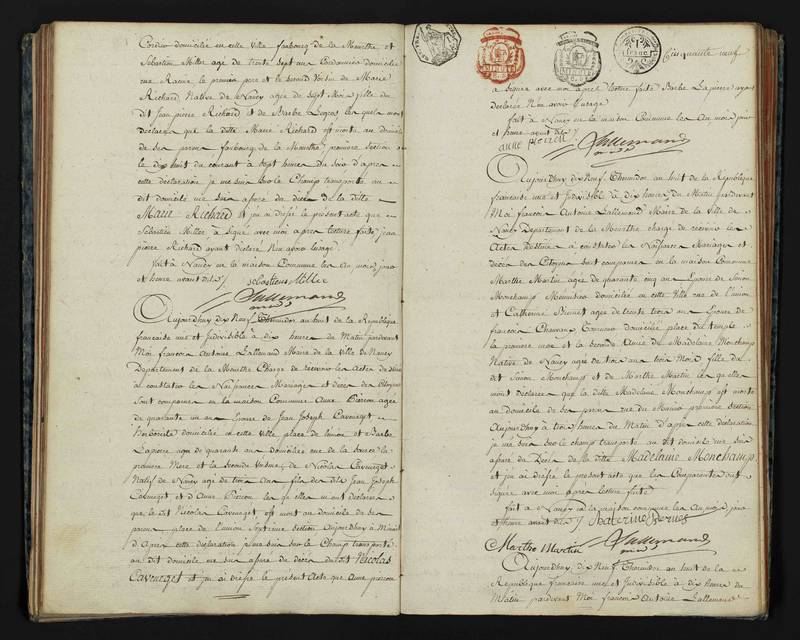 Cordier domicilié en cette Ville faubourg de la Meurthe et
Sebastien Miller agé de trente sept ans domicilié
rue Racine le premier pere et le second Voisin de Marie
Richard Native de Nancy agée de sept Mois fille du
dit Jean pierre Richard et de Barbe les quels mont
declarés que la ditte Marie Richard est morte au domicile
de ses peres faubourg de la Meurthe premiere Section
le dix huit du courant à sept heures du Soir d'apres
cette declaration je me suis sur le Champ transporté au
dit domicile me suis assuré du décès de la ditte
Marie Richard et j'ai dressé le présent acte que
Sebastien Miller à signé avec moi apres lecture faite jean
pierre Richard ayant déclaré Non avoir lusage
fait à Nancy en la maison Commune les an mois jour
et heure avant dits
sebastien Miller
Lallemand
Aujourdhuy dix Neuf Thermidor an huit de la République
française une et Indivisible à dix heures du Matin pardevant
Moi francois Antoine Lallemand Maire de la Ville de Nancy
Departement de la Meurthe Chargé de recevoir les Actes destinés
à constater les Naissances Mariages et décès des Citoyens
Sont comparues en la maison Commune Anne Pierson agée
de quarante un ans Epouse de Jean Joseph Caveneget
domiciliée en cette ville place de lunion et Barbe
Lapierre agée de quarante ans domiciliée rue de la source la
premiere Mere et la seconde Voisine de Nicolas Caveneget
Natif de Nancy agé de trois ans fils du dit Jean Joseph
Caveneget et d'Anne Pierson les quelles mont déclarées
que le dit Nicolas Caveneget est mort au domicile de ses
peres place de lunion Septieme Section Aujourdhuy à Minuit
d'Apres cette déclaration je me suis sur le Champ transporté
au dit domicile me suis assuré du décès du dit Nicolas
Caveneget et j'ai dressé le présent Acte que Anne pierson
Cinquante neuf
a signée avec moi apres lecture faite Barbe Lapierre ayant
declarée Non avoir l'usage
fait à Nancy en la maison Commune les An mois jour
et heure avant dits
anne pierson
Lallemand
Aujourdhuy dix Neuf Thermidor an huit de la République
française une et Indivisible à dix heures du Matin pardevant
Moi francois Antoine Lallemand Maire de la Ville de
Nancy Departement de la Meurthe chargé de recevoir les
Actes destinés à constater les Naissances Mariages et
décès des Citoyens Sont comparues en la maison Commune
Marthe Martin agée de quarante cinq ans Epouse de Simon
Monchamps Menuisier domiciliée en cette Ville rue de l'union
et Catherine agée de trente trois ans Epouse de
francois domiciliée place du temple
la premiere mere et la seconde Amie de Madelaine Monchamps
Native de Nancy agée de trois ans trois Mois fille du
dit Simon Monchamps et de Marthe Martin les quelles
mont déclarées que la ditte Madelaine Monchamps est morte
au domicile de ses peres rue du premiere Section
Aujourdhuy à trois heures du Matin d'apres cette déclaration
je me suis sur le champ transporté au dit domicile me suis
assuré du Décès de la ditte Madelaine Monchamps
et j'ai dressé le présent acte que les Comparantes ont
signée avec moi apres lecture faite
fait à Nancy en la maison commune les An mois jour
et heure avant dits
Marthe Martin
Lallemand
Aujourdhuy dix Neuf Thermidor an huit de la
République française une et Indivisible à dix heures du
Matin pardevant Moi francois Antoine Lallemand